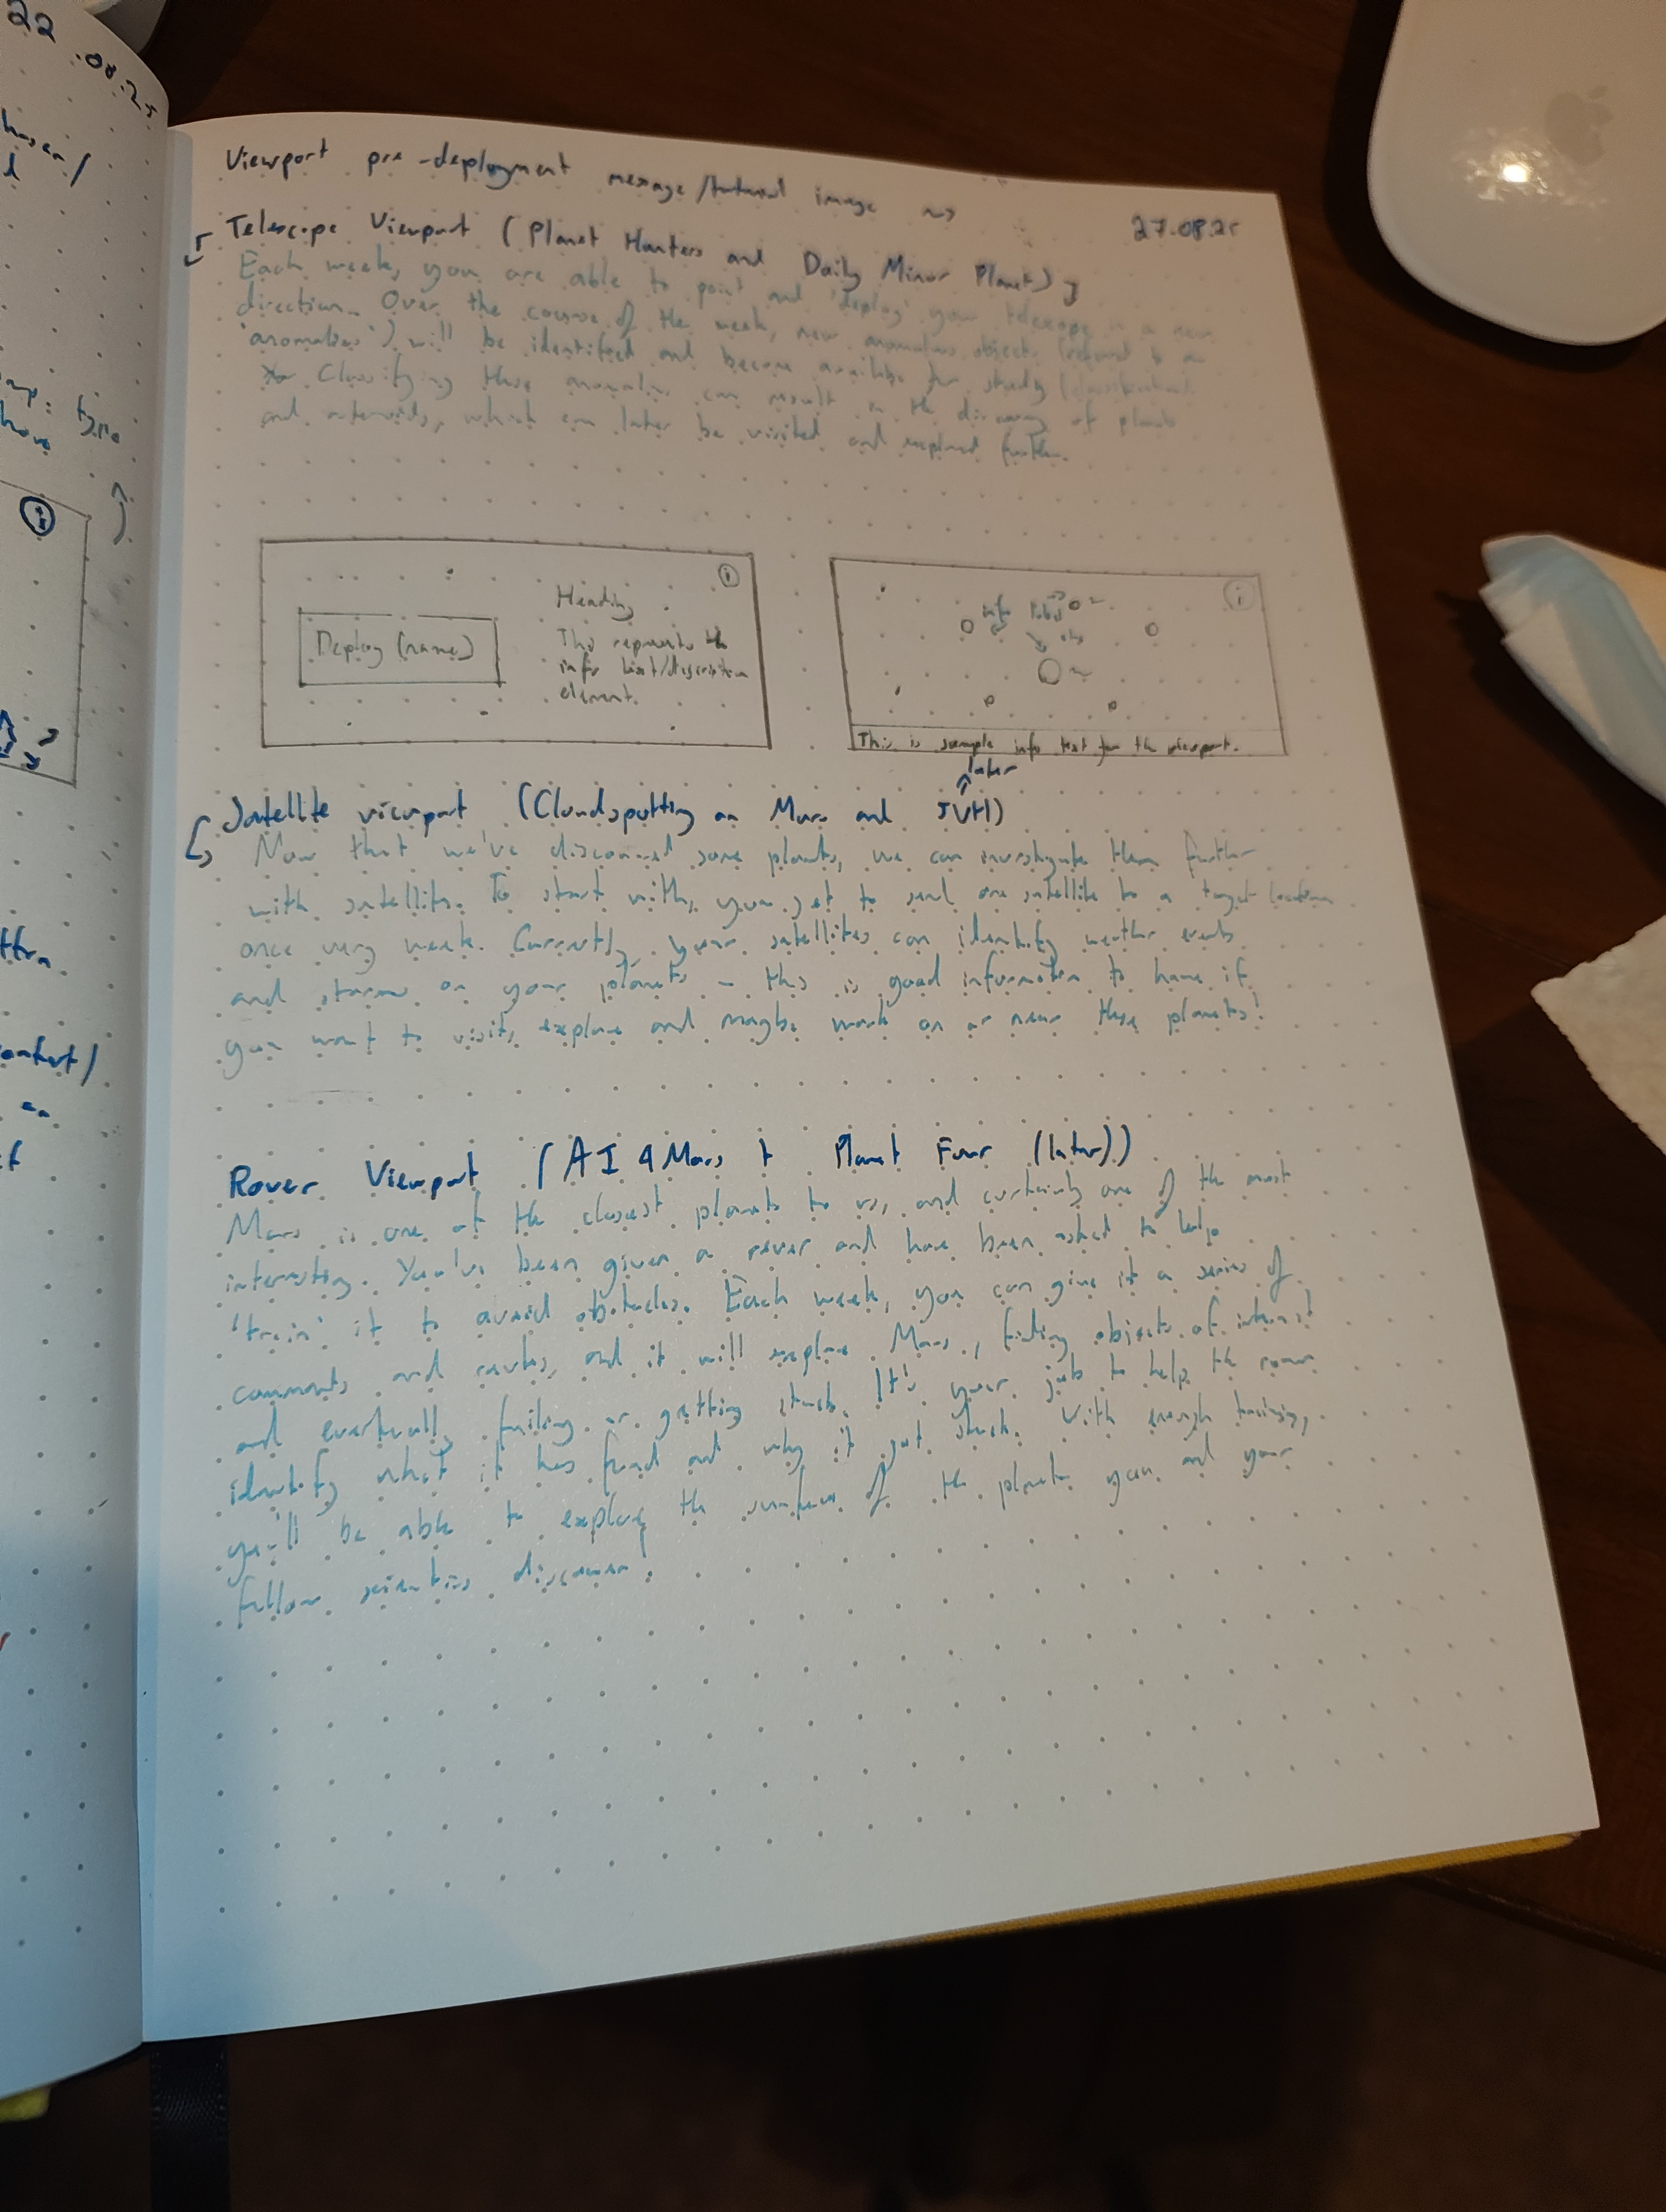 22.08.25
Viewport pre-deployment message/tutorial image ~>
27.08.25
Telescope Viewport (Planet Hunters and Daily Minor Planet)
Each week, you are able to point and 'deploy' your telescope in a new
direction. Over the course of the week, new anomalous objects (referred to as
'anomalies') will be identified and become available for study (classification).
Classifying these anomalies can result in the discovery of planets
and asteroids, which can later be visited and explored further.
Deploy (name)
Heading
This represents the
info text/description
element.
i
info label
i
This is sample info text for the viewport.
later
Satellite viewport (Cloudspotting on Mars and JVH)
Now that we've discovered some planets, we can investigate them further
with satellites. To start with, you get to send one satellite to a target location
once very week. Currently, your satellites can identify weather events
and storms on your planets - this is good information to have if
you want to visit, explore and maybe work on or near these planets!
Rover Viewport (AI4Mars + Planet Four (later))
Mars is one of the closest planets to us, and certainly one of the most
interesting. You've been given a rover and have been asked to help
'train' it to avoid obstacles. Each week, you can give it a series of
commands and routes, and it will explore Mars, finding objects of interest
and eventually failing or getting stuck. It's your job to help the rover
identify what it has found and why it got stuck. With enough training,
you'll be able to explore the surface of the planets you and your
fellow scientists discover!